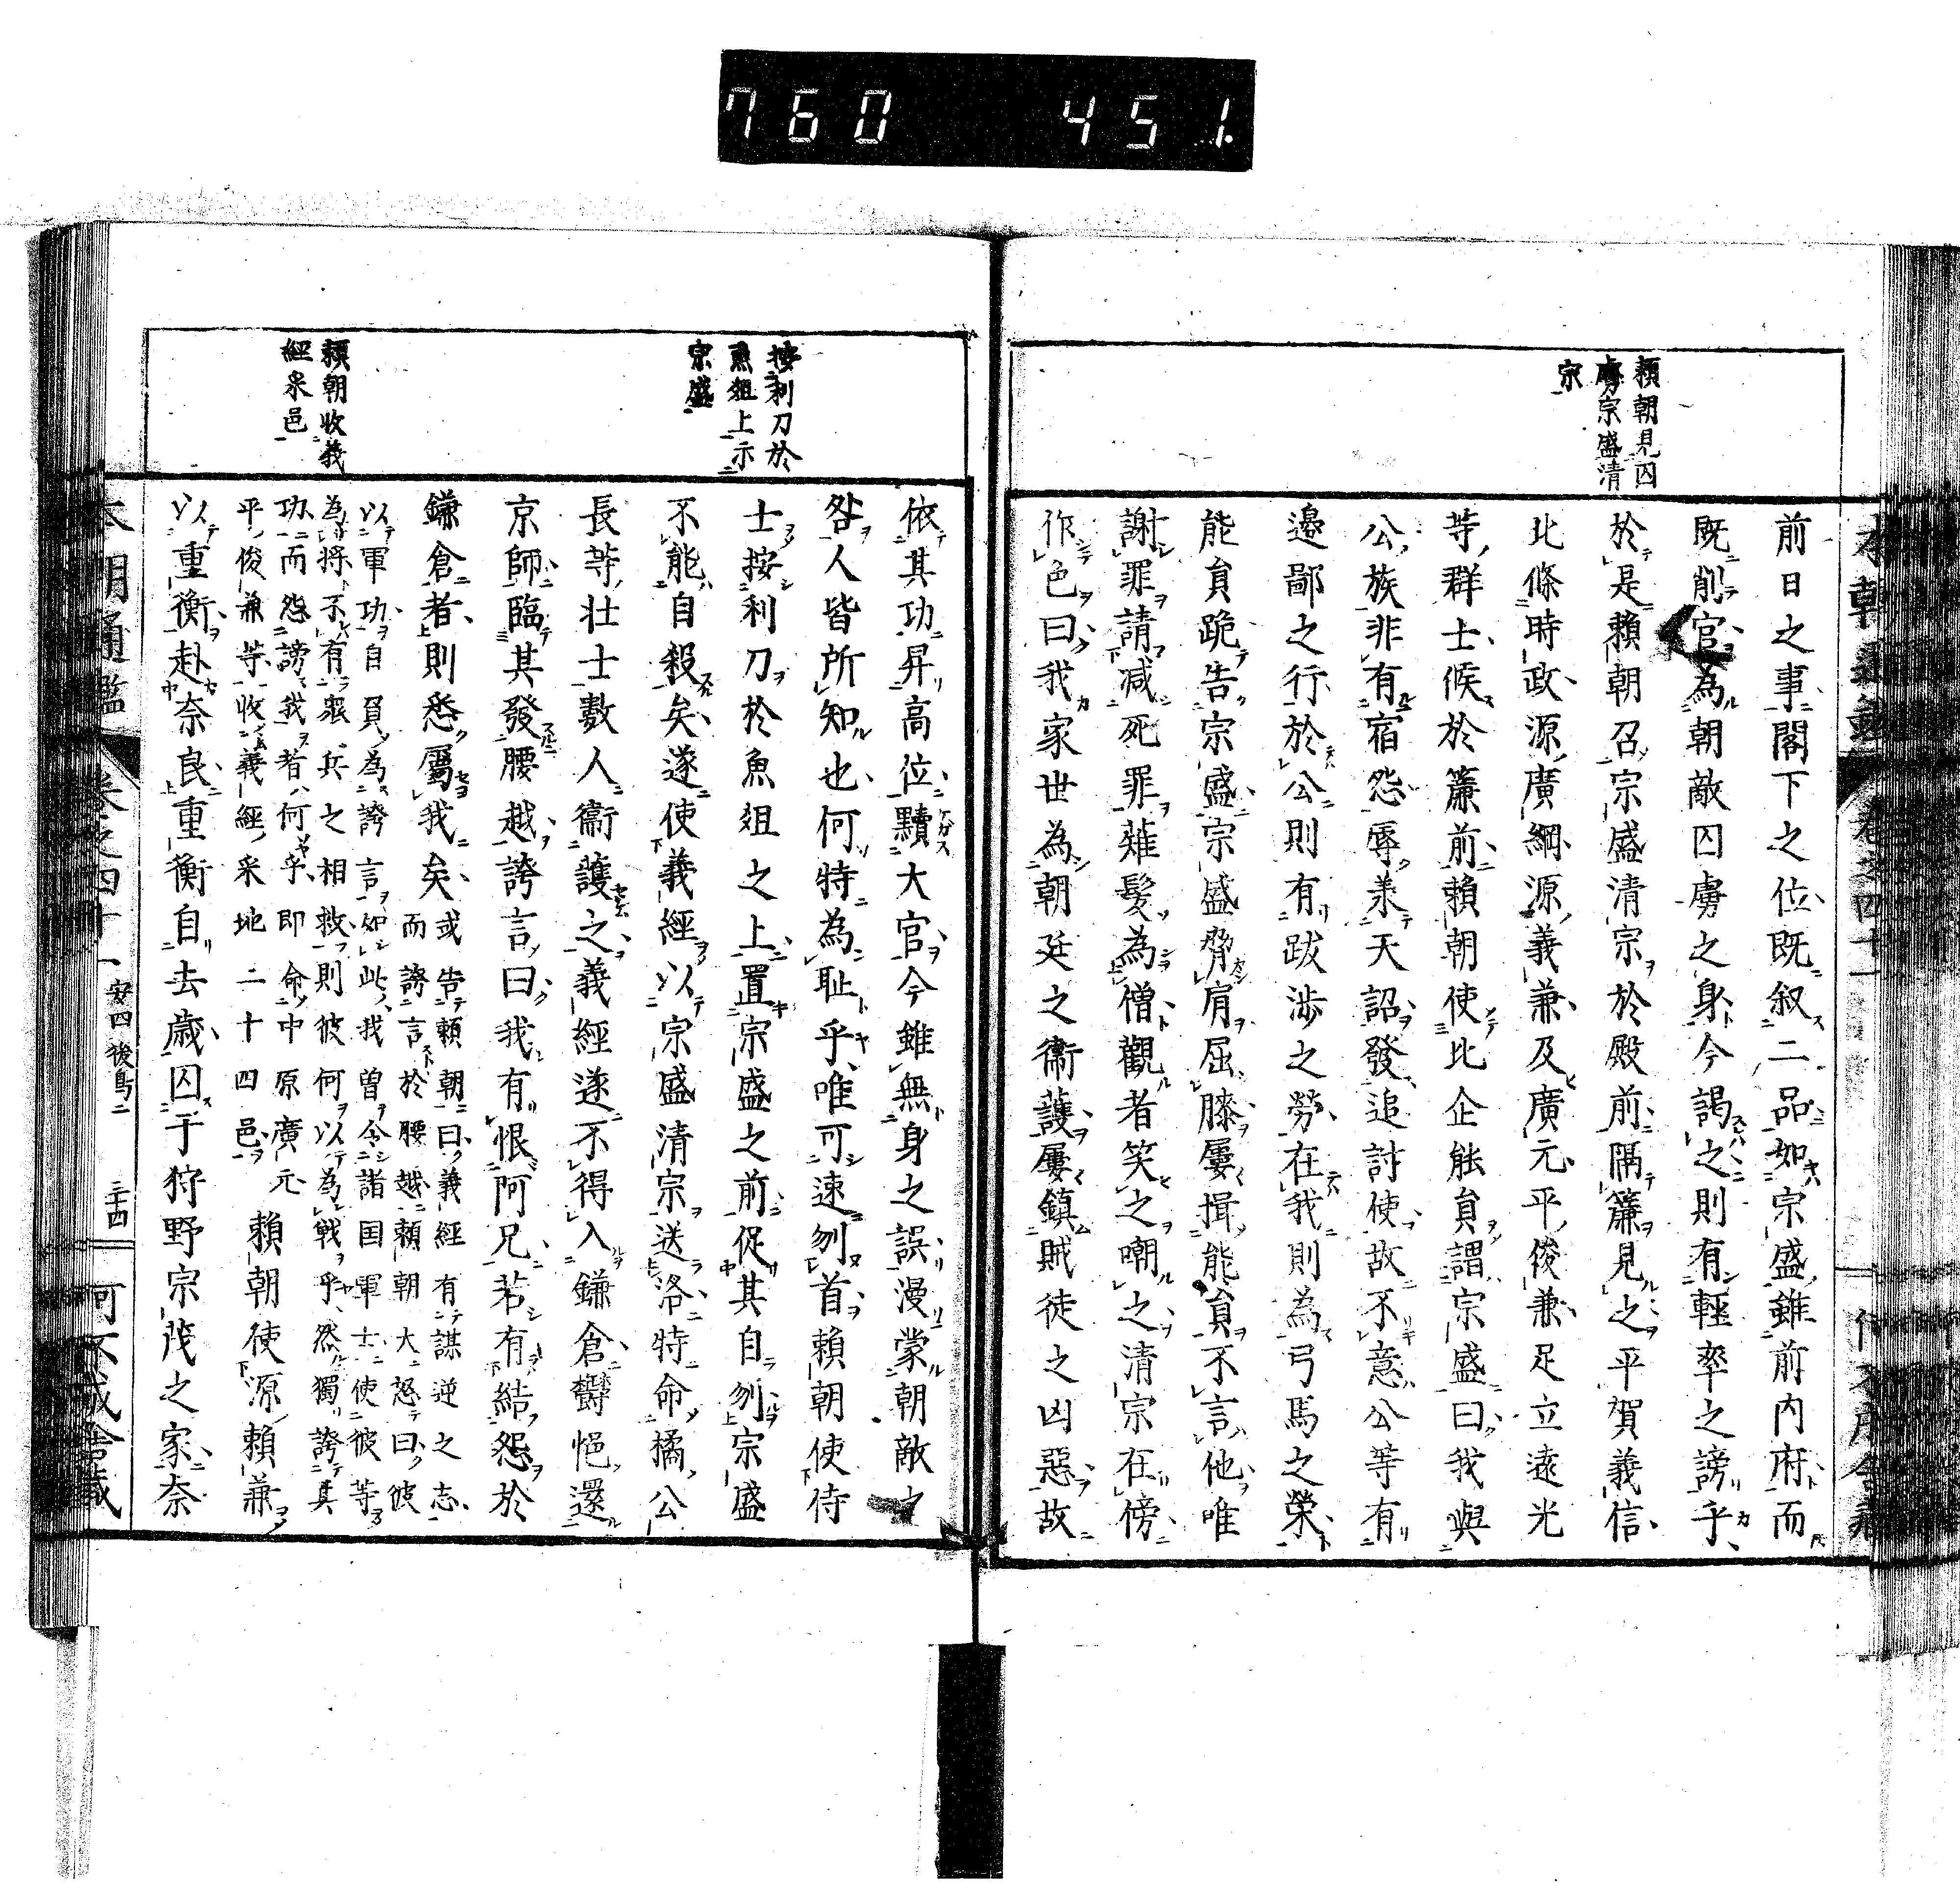 760 451
頼朝見囚
虜宗盛清
宗
前日之事閣下之位既叙二品如宗盛雖前内府而
既削官為朝敵囚虜之身今謁之則有輕率之謗乎
於是頼朝召宗盛清宗於殿前隔簾見之平賀義信
北條時政源廣綱源義兼及廣元平俊兼足立遠光
等群士候於簾前頼朝使比企能員謂宗盛曰我與
公族非有宿怨辱羕天詔發追討使故不意公等有
邊鄙之行於公則有跋渉之勞在我則為弓馬之榮
能員跪告宗盛宗盛脅肩屈膝屢揖能員不言他唯
謝罪請減死罪薙髪為僧觀者笑之嘲之清宗在傍
作色曰我家世為朝廷之衞護屢鎮賊徒之凶惡故
按利刀於
魚俎上示
宗盛
頼朝收義
經釆邑
依其功昇高位黷大官今雖無身之誤漫蒙朝敵之
咎人皆所知也何特為耻乎唯可速刎首頼朝使侍
士按利刀於魚俎之上置宗盛之前促其自刎宗盛
不能自殺矣遂使義經以宗盛清宗送洛特命橘公
長等壮士數人衞護之義經遂不得入鎌倉欝悒還
京師臨其發腰越誇言曰我有恨阿兄若有結怨於
鎌倉者則悉屬我矣
或告頼朝曰義經有謀逆之志
而誇言於腰越頼朝大怒曰彼
以軍功自負為誇言如此我曽令諸国軍士使彼等
為將不有衆兵之相救則彼何以為戦乎然獨誇其
功而怨謗我者何乎即命中原廣元
平俊兼等收義經釆地二十四邑
頼朝使源頼兼
以重衡赴奈良重衡自去歳囚于狩野宗茂之家奈
本朝通鑑 卷之四十一 安四 後鳥二 三十四